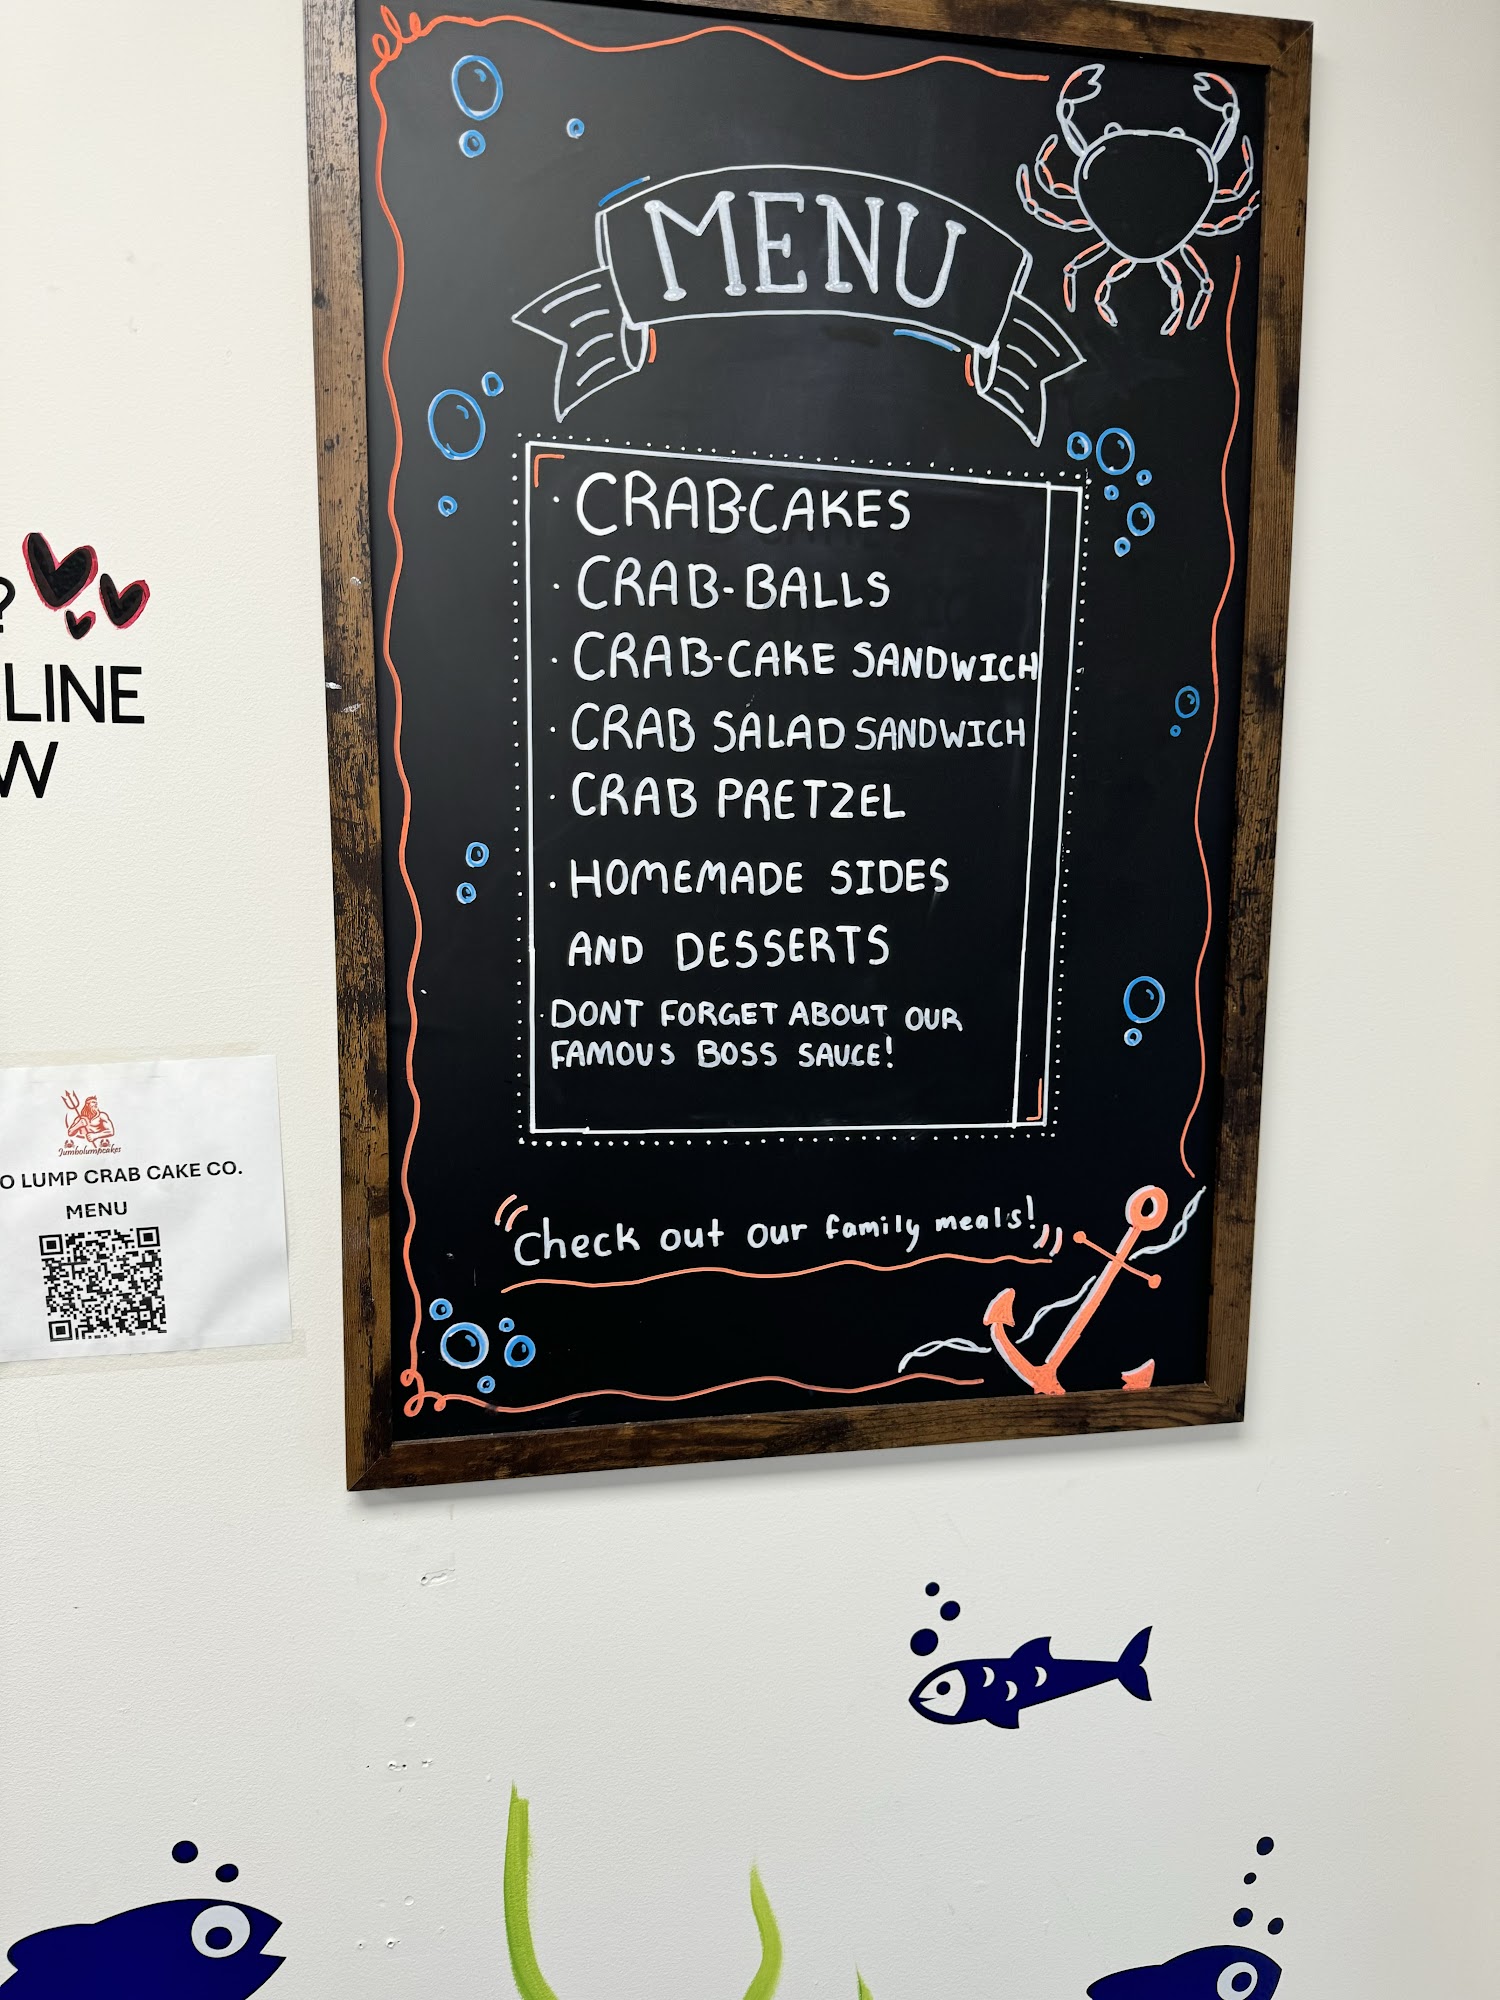 MENU
· CRAB-CAKES
· CRAB-BALLS
· CRAB-CAKE SANDWICH
· CRAB SALAD SANDWICH
· CRAB PRETZEL
· HOMEMADE SIDES
AND DESSERTS
· DONT FORGET ABOUT OUR
FAMOUS BOSS SAUCE!
"Check out our family meals!"
?
LINE
W
Jumbolumpcakes
O LUMP CRAB CAKE CO.
MENU